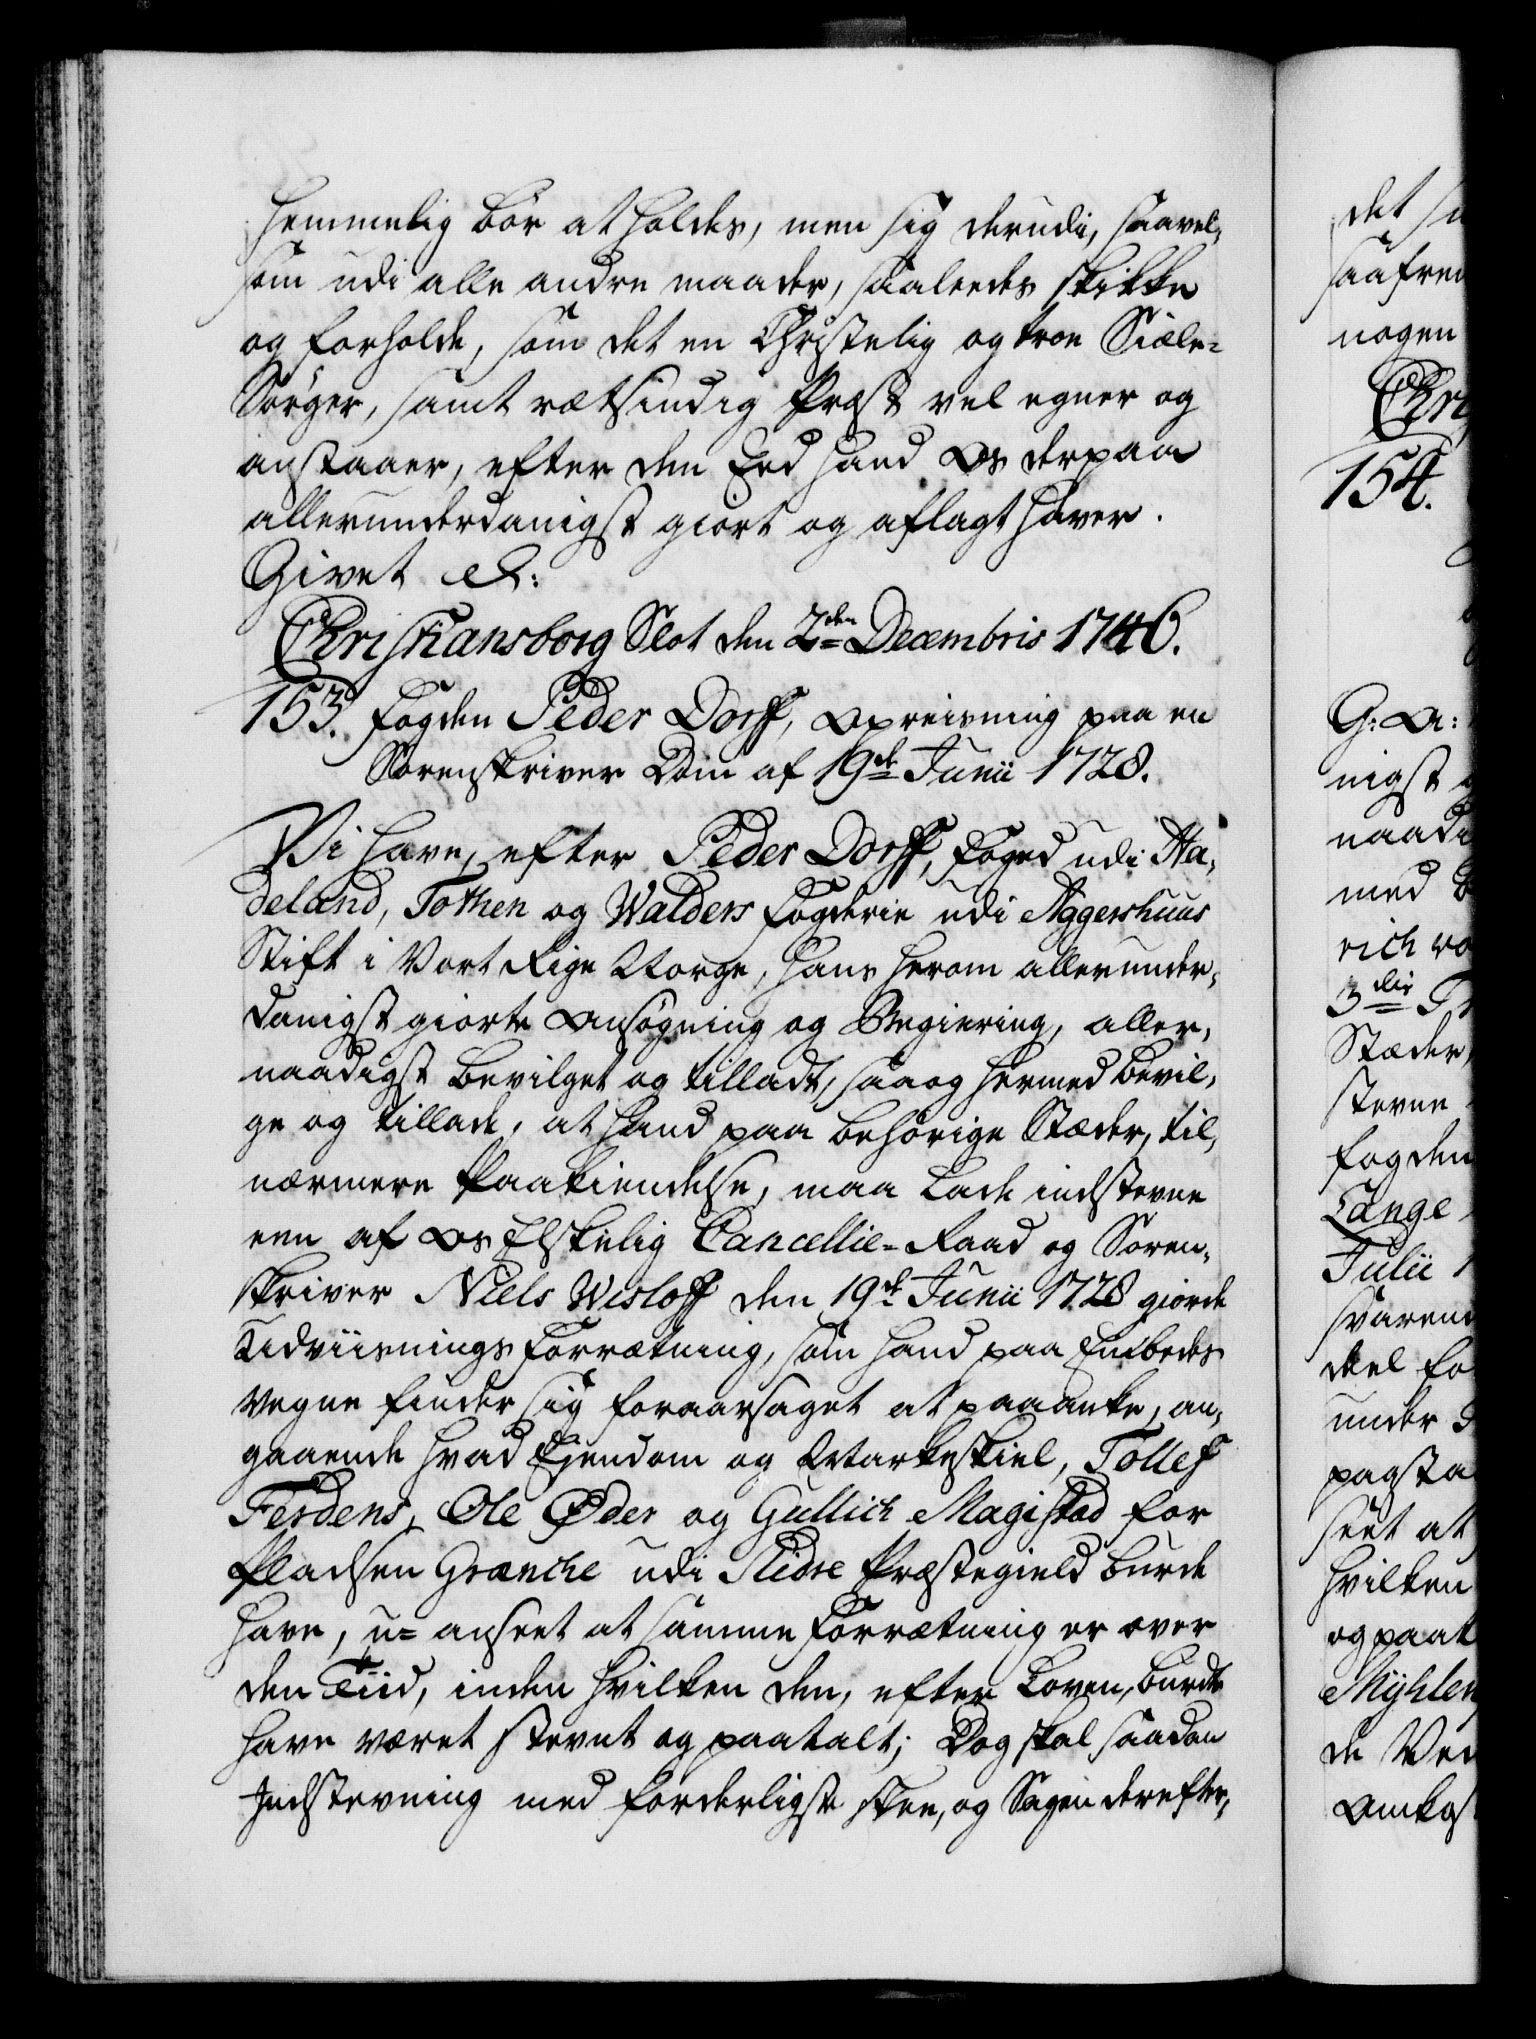 hemmelig bør at holdes, men sig derudi, saavel,
som udi alle andre maader, saaleedes skikke
og forholde, som det en Christelig og troe Siæle-
Sørger, samt rætsindig Præst vel egner og
anstaaer, efter den Eed hand Os derpaa
allerunderdanigst giort og aflagt haver.
Givet &:
Christiansborg Slot den 2den Decembris 1746.
153. Fogden Peder Dorff, Opreisning paa en
Sorenskriver Dom af 19de Junii 1728.
Vi have, efter Peder Dorff, Foged udi Ha,
deland, Tothen og Walders Fogderie udi Aggershuus
Stift i Vort Rige Norge, hans herom allerunder,
danigst giorte Ansøgning og Begiering, aller,
naadigst bevilget og tilladt, saa og hermed bevil,
ge og tillade, at hand paa behørige Stæder, til,
nærmere Paakiendelse, maa lade indstevne
een af Os Elskelig Cancellie-Raad og Soren,
skriver Niels Wisloff den 19de Junii 1728 giorde
Udviisnings Forrætning, som hand paa Embeds
vegne finder sig foraarsaget at paaanke, an,
gaaende hvad Ejendom og Markeskiel, Tollef
Ferdens, Ole Øder og Gullich Magistad for
Pladsen Grænche udi Slidre Præstegield burde
have, u-anseet at samme Forrætning er over
den Tiid, inden hvilken den, efter Loven, burde
have været stevnt og paatalt; Dog skal saadan
Indstevning med forderligste skee, og Sagen derefter,
det
nogen
154.
G: A:
nigst
naadi
med
rich
3die
Stæder
stevne
fogden
Lange
Julii
deel
under
seet at
hvilken
de